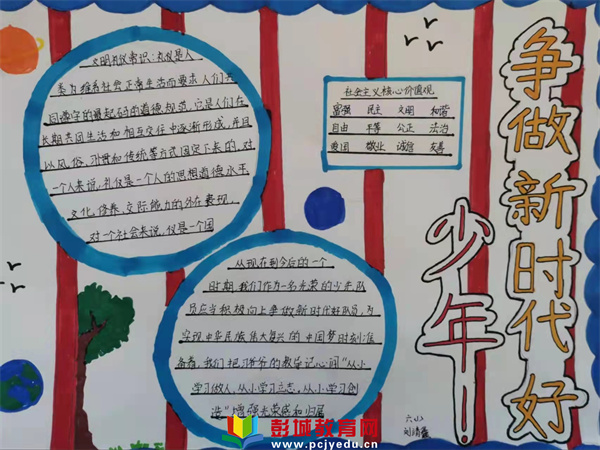 文明礼仪常识：礼仪是人
类为维系社会正常生活而要求人们共
同遵守的最起码的道德规范，它是人们在
长期共同生活和相互交往中逐渐形成，并且
以风俗、习惯和传统等方式固定下来的，对
一个人来说，礼仪是一个人的思想道德水平
文化、修养、交际能力的外在表现，
对一个社会来说，仪是一个国
社会主义核心价值观
富强 民主 文明 和谐
自由 平等 公正 法治
爱国 敬业 诚信 友善
争做新时代好
少年！
从现在到今后的一个
时期，我们作为一名光荣的少先队
员应当积极向上争做新时代好队员，为
实现中华民族伟大复兴的中国梦时刻准
备着，我们把习爷爷的教导记心间“从小
学习做人，从小学习立志，从小学习创
造”增强光荣感和归属
六(2)
彭城教育网
www.pcjyedu.cn